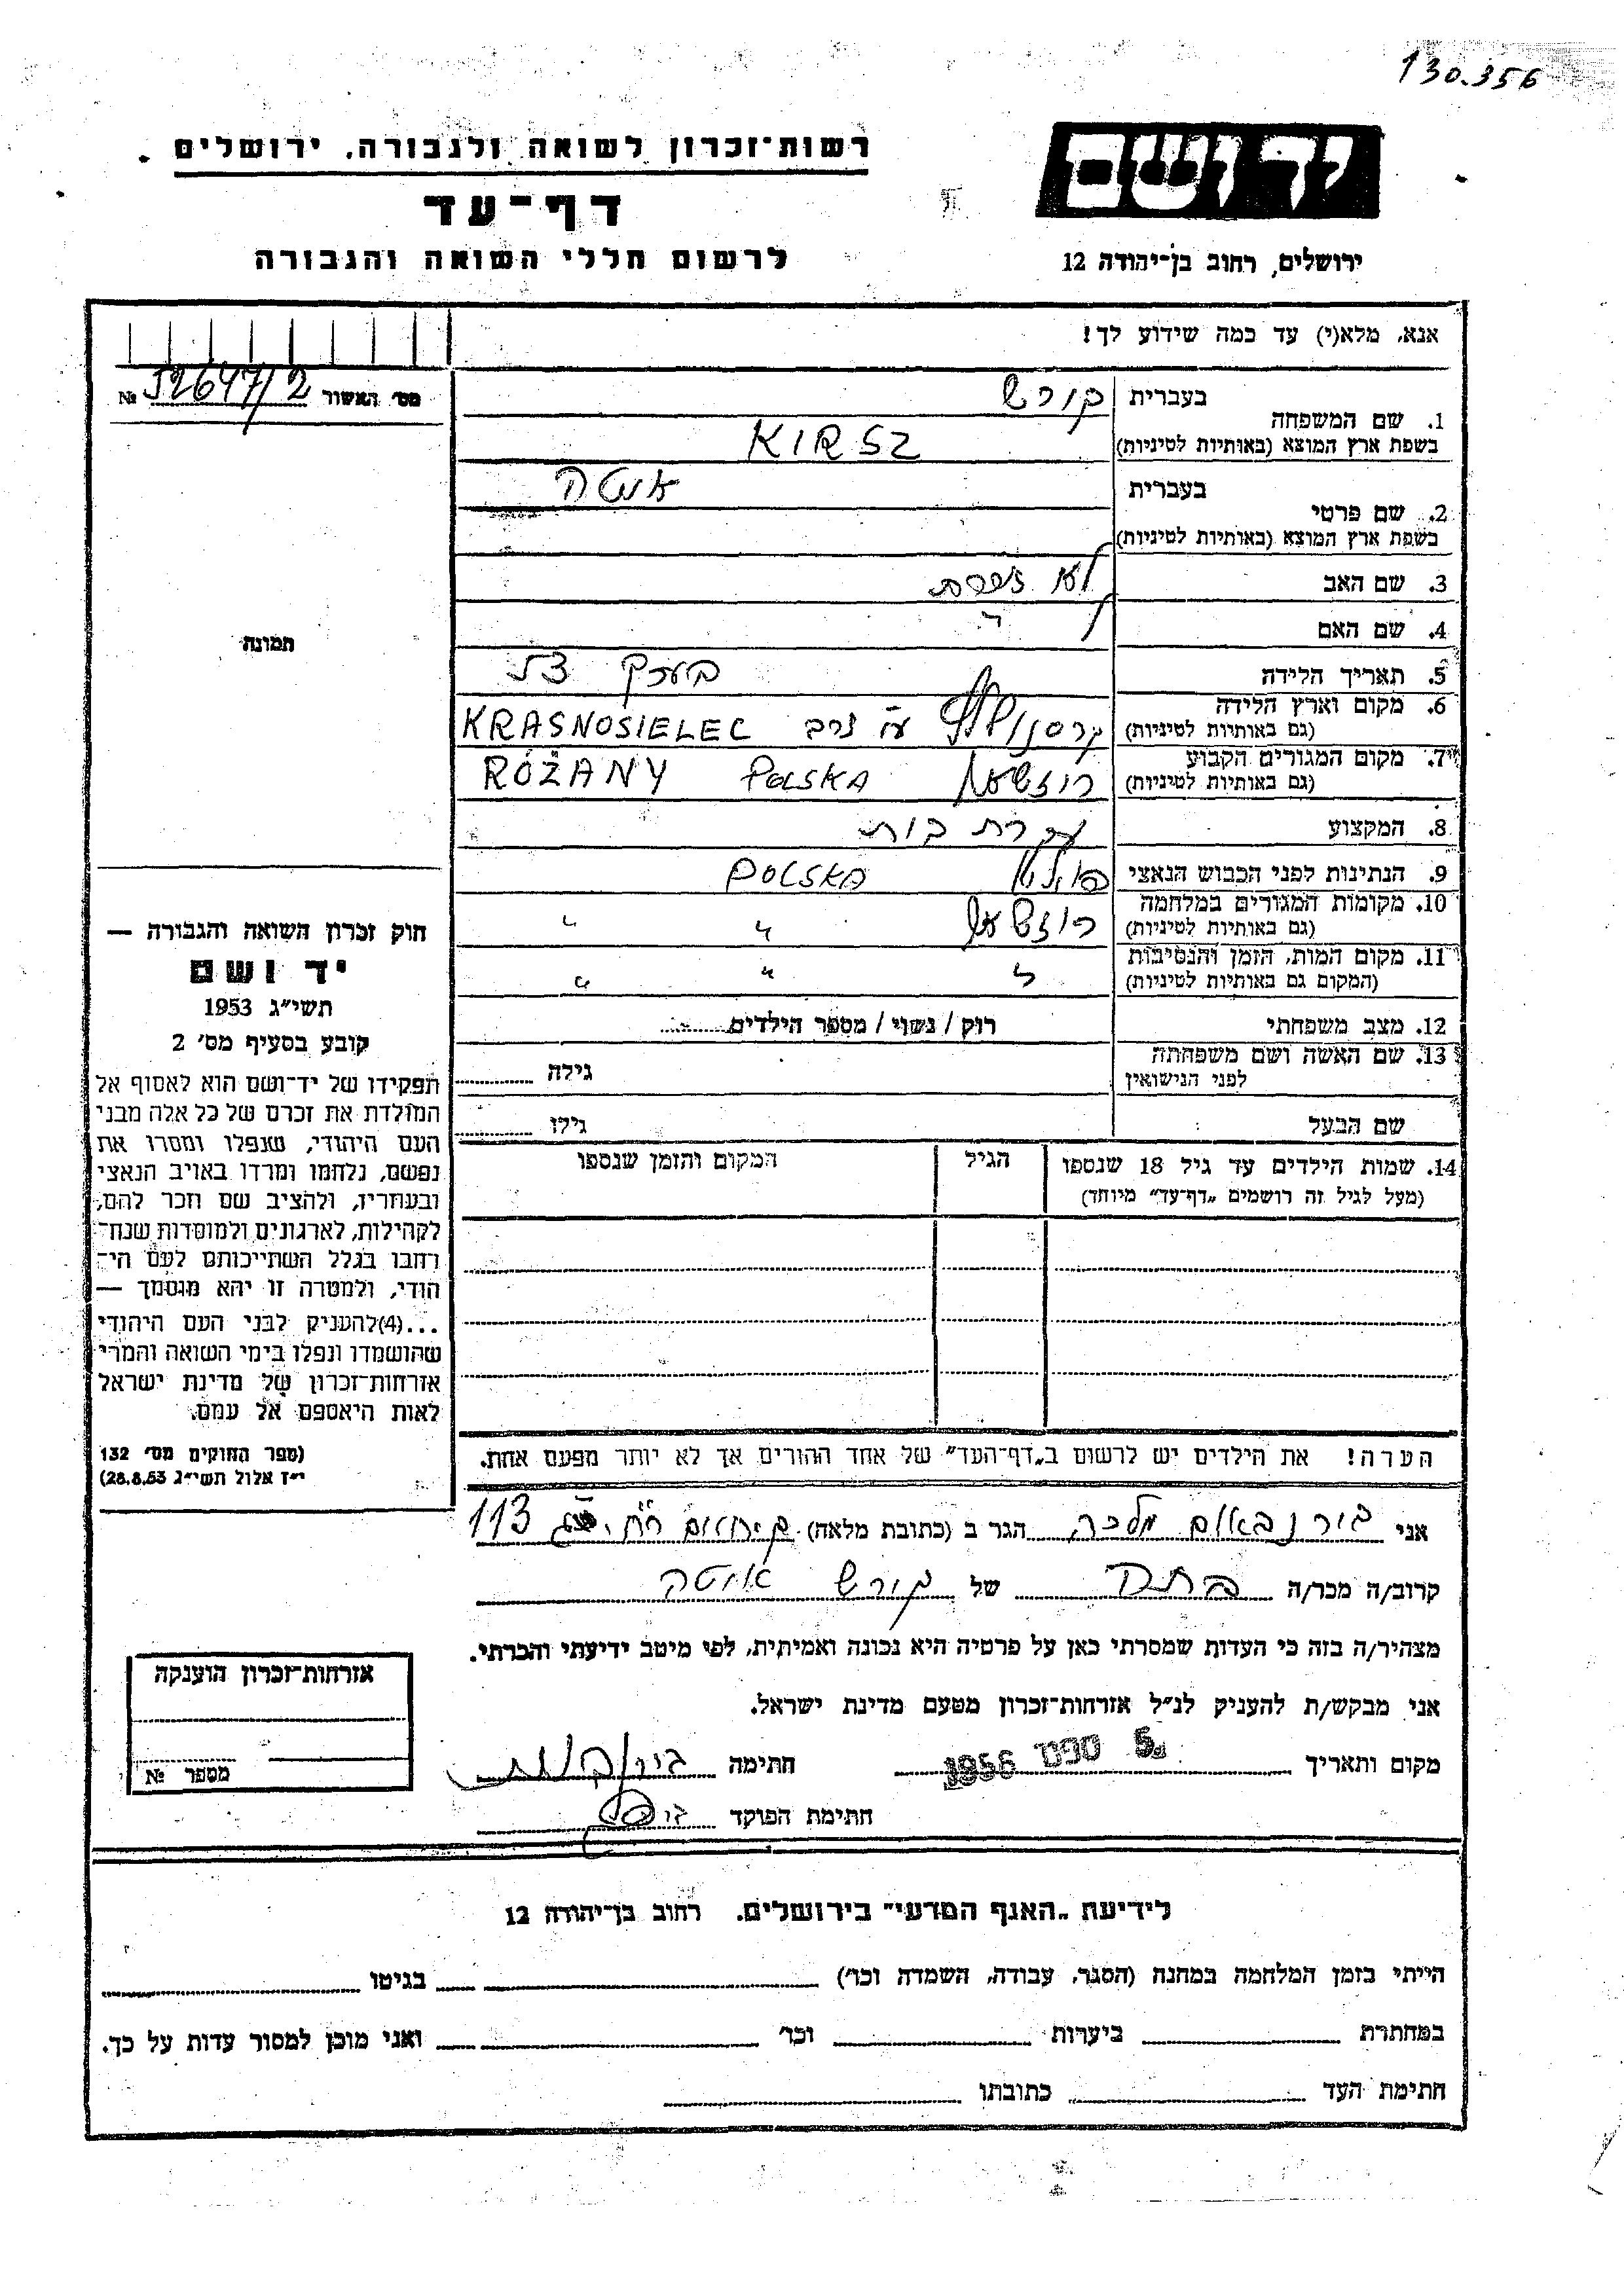 130.356
יד ושם
רשות־זכרון לשואה ולגבורה, ירושלים
דף־עד
ירושלים, רחוב בן־יהודה 12
לרשום חללי השואה והגבורה
אנא, מלא(י) עד כמה שידוע לך!
מס׳ האשור № 52647/2
1. שם המשפחה בעברית קורש
בשפת ארץ המוצא (באותיות לטיניות) KIRSZ
2. שם פרטי בעברית אוטה
בשפת ארץ המוצא (באותיות לטיניות)
3. שם האב לא זוכרת
4. שם האם "
5. תאריך הלידה בערך
6. מקום וארץ הלידה
(גם באותיות לטיניות) KRASNOSIELEC
7. מקום המגורים הקבוע
(גם באותיות לטיניות) POLSKA RÓŻANY
8. המקצוע עקרת בית
9. הנתינות לפני הכבוש הנאצי פולין POLSKA
10. מקומות המגורים במלחמה
(גם באותיות לטיניות) " "
11. מקום המות, הזמן והנסיבות
(המקום גם באותיות לטיניות) " " "
12. מצב משפחתי רוק / נשוי / מספר הילדים
13. שם האשה ושם משפחתה
לפני הנישואין גילה
שם הבעל גילו
14. שמות הילדים עד גיל 18 שנספו הגיל המקום והזמן שנספו
(מעל לגיל זה רושמים „דף־עד״ מיוחד)
הערה! את הילדים יש לרשום ב„דף־העד״ של אחד ההורים אך לא יותר מפעם אחת.
תמונה
חוק זכרון השואה והגבורה —
יד ושם
תשי״ג 1953
קובע בסעיף מס׳ 2
תפקידו של יד־ושם הוא לאסוף אל
המולדת את זכרם של כל אלה מבני
העם היהודי, שנפלו ומסרו את
נפשם, נלחמו ומרדו באויב הנאצי
ובעוזריו, ולהציב שם וזכר להם,
לקהילות, לארגונים ולמוסדות שנח־
רבו בגלל השתייכותם לעם הי־
הודי, ולמטרה זו יהא מוסמך —
...(4)להעניק לבני העם היהודי
שהושמדו ונפלו בימי השואה והמרי
אזרחות־זכרון של מדינת ישראל
לאות היאספם אל עמם.
(ספר החוקים מס׳ 132
י״ז אלול תשי״ג 28.8.53)
אני בירנבאום מלכה הגר ב (כתובת מלאה) 113
קרוב/ה מכר/ה של קורש אוטה
מצהיר/ה בזה כי העדות שמסרתי כאן על פרטיה היא נכונה ואמיתית, לפי מיטב ידיעתי והכרתי.
אני מבקש/ת להעניק לנ״ל אזרחות־זכרון מטעם מדינת ישראל.
מקום ותאריך 5 ספט 1956 חתימה
חתימת הפוקד
אזרחות־זכרון הוענקה
מספר №
לידיעת „האגף המדעי״ בירושלים, רחוב בן־יהודה 12
הייתי בזמן המלחמה במחנה (הסגר, עבודה, השמדה וכו׳) בגיטו
במחתרת ביערות וכו׳ ואני מוכן למסור עדות על כך.
חתימת העד כתובתו